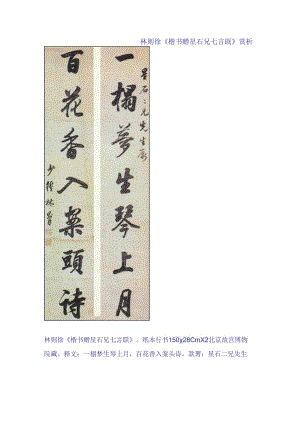 林则徐《楷书赠星石兄七言联》赏析
星石二兄先生属
一榻梦生琴上月
百花香入案头诗
少穆林则徐
林则徐《楷书赠星石兄七言联》，纸本行书150y28CmX2北京故宫博物
院藏。释文：一榻梦生琴上月，百花香入案头诗。款署：星石二兄先生